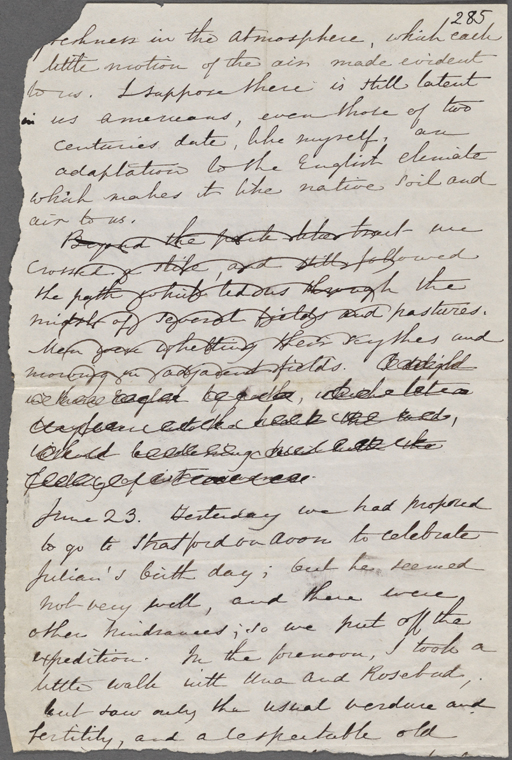 285
freshness in the atmosphere, which each
little motion of the air made evident
to us. I suppose there is still latent
in us americans, even those of two
centuries date, like myself, an
adaptation to the English climate
which makes it like native soil and
air to us.
Beyond the park tract we
crossed a stile, and still followed
the path which led us through the
middle of several fields and pastures.
Men were whetting their scythes and
mowing in adjacent fields.
June 23. Yesterday we had proposed
to go to Stratford on Avon to celebrate
Julian's birth day; but he seemed
not very well, and there were
other hindrances; so we put off the
expedition. In the forenoon, I took a
little walk with Una and Rosebud,
but saw only the usual verdure and
fertility, and a respectable old